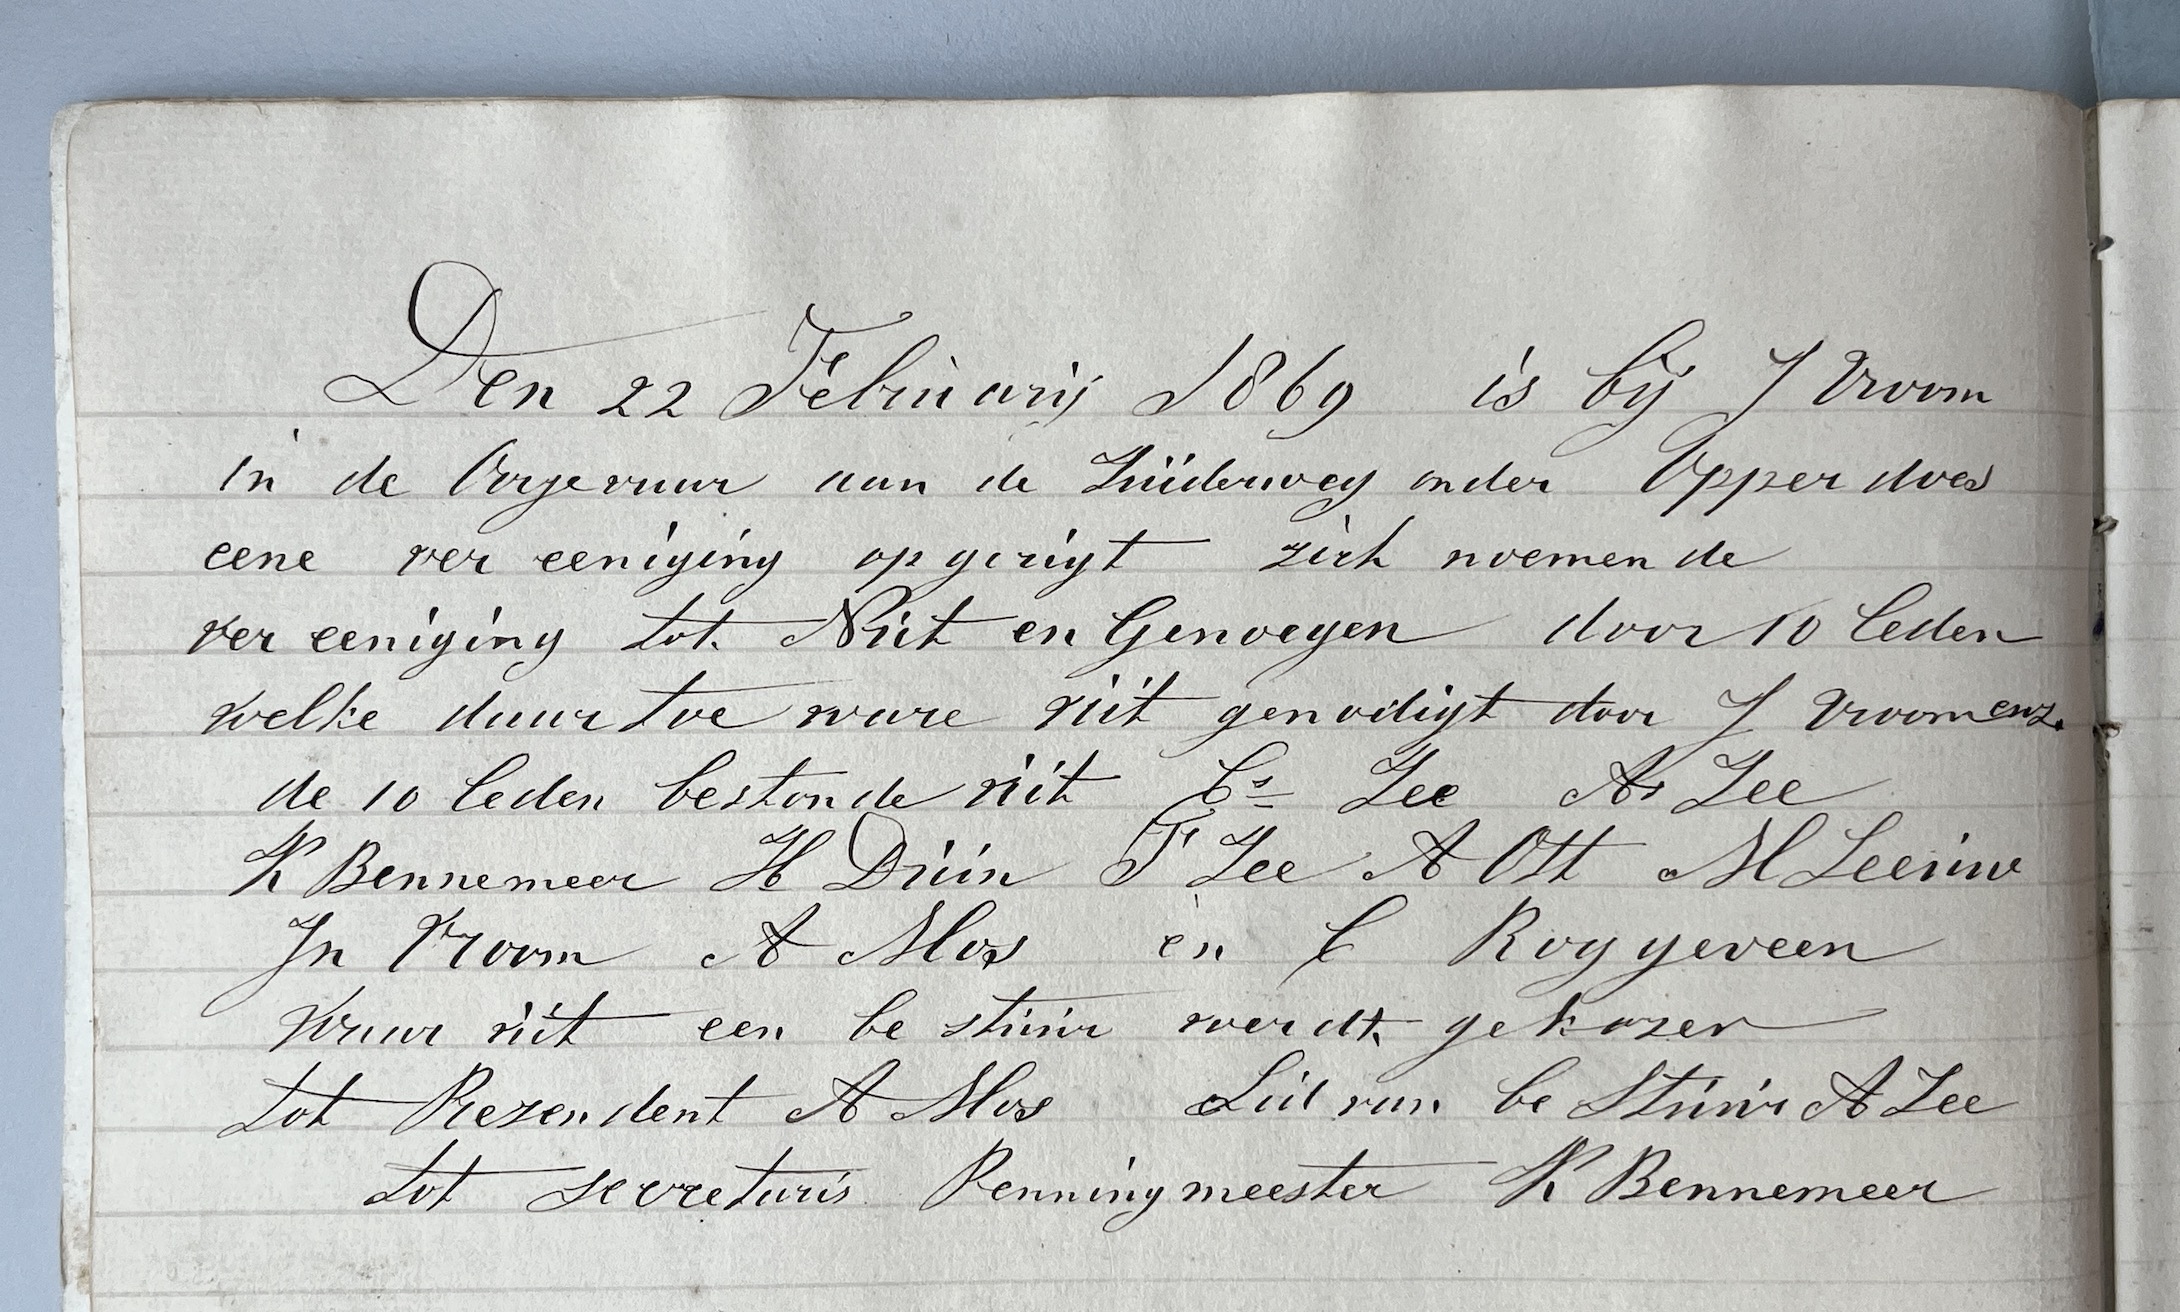 Den 22 Februarij 1869 is bij J Vroom
in de Oijevaar aan de Zuiderweg onder Opper does
eene ver eeniging op gerigt zich noemen de
ver eeniging tot Nut en Genoegen door 10 leden
welke daar toe ware uit genodigt door J Vroom enz.
de 10 leden beston de uit Cs Zee Ar Zee
K Bennemeer H Druin P Zee A Ott M Leeuw
Jn Vroom A Mos en C Roggeveen
waar uit een be stuur werdt gekozen
tot Prezendent A Mos Lid van be Stuur A Zee
tot secretaris Penningmeester K Bennemeer